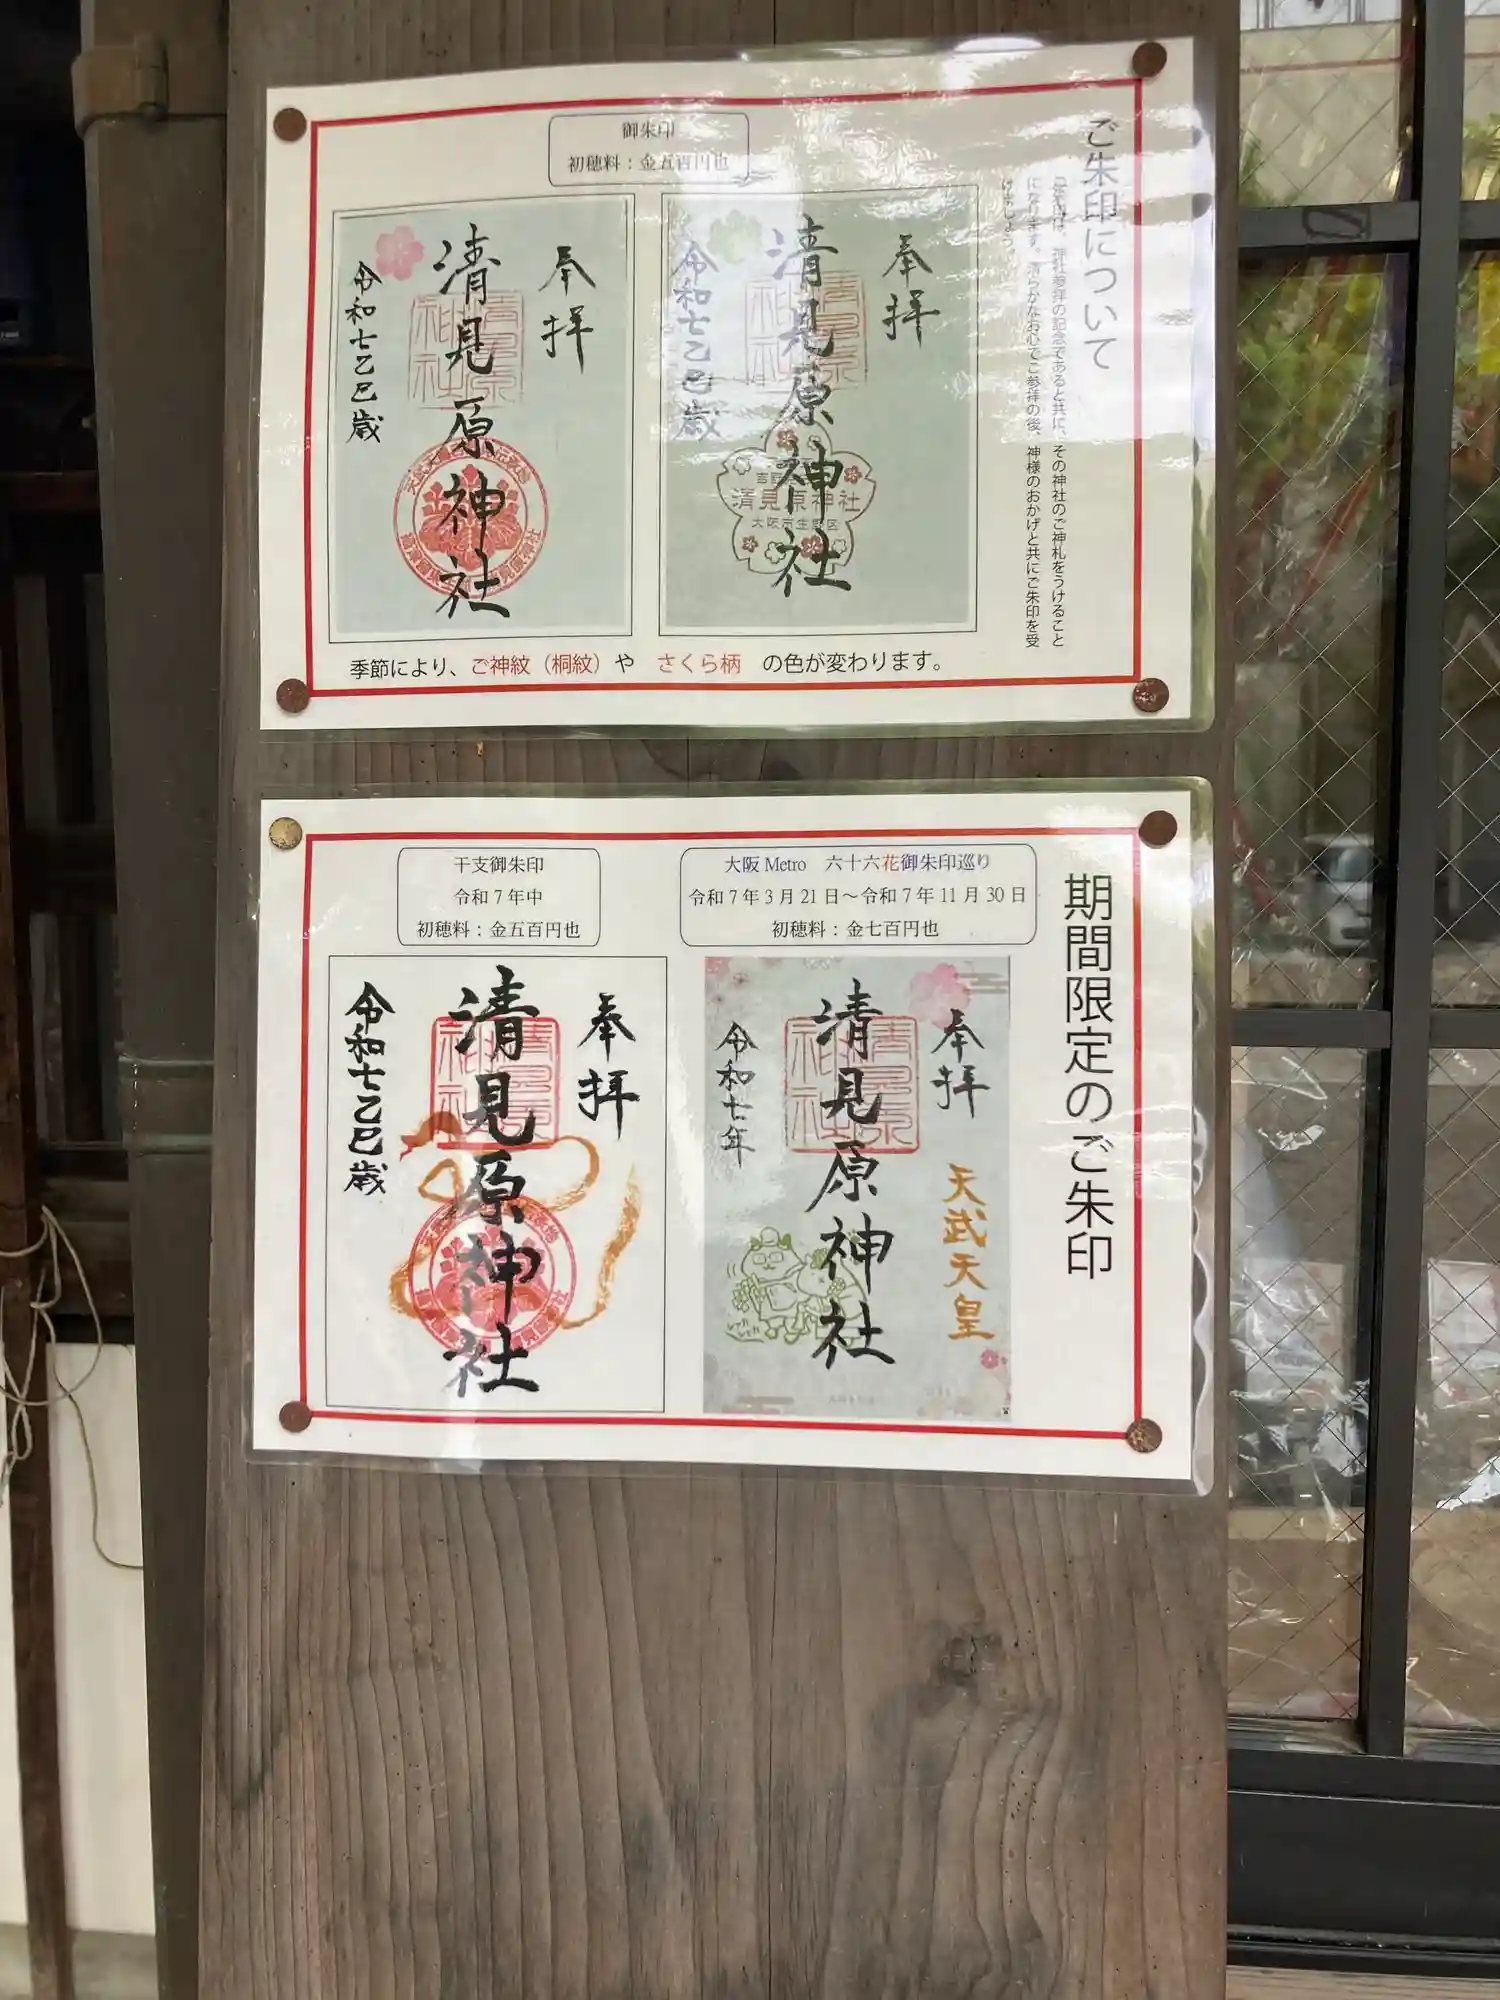 ご朱印について
ご朱印は、神社参拝の記念であると共に、その神社のご神札をうけること
になります。清らかなお心でご参拝の後、神様のおかげと共にご朱印を受
けましょう。
御朱印
初穂料：金五百円也
奉拝
清見原神社
令和七乙巳歳
清見原神社
大阪市生野区
奉拝
清見原神社
令和七乙巳歳
季節により、ご神紋（桐紋）や　さくら柄　の色が変わります。
期間限定のご朱印
大阪 Metro　六十六花御朱印巡り
令和 7 年 3 月 21 日～令和 7 年 11 月 30 日
初穂料：金七百円也
奉拝
天武天皇
清見原神社
令和七年
干支御朱印
令和 7 年中
初穂料：金五百円也
奉拝
清見原神社
令和七乙巳歳